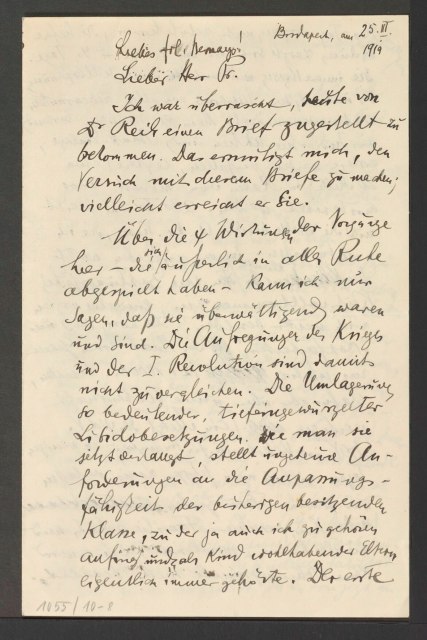 Budapest, am 25. VI.
1919
Liebes Frl. Bernays!
Lieber Herr Pr.
Ich war überrascht, heute von
Dr Reich einen Brief zugestellt zu
bekommen. Das ermutigt mich, den
Versuch mit diesem Briefe zu machen;
vielleicht erreicht er Sie.
Über die ψ Wirkungen der Vorgänge
hier – die sich äußerlich in aller Ruhe
abgespielt haben – kann ich nur
sagen, daß sie überwältigend waren
und sind. Die Aufregungen des Kriegs
und der I. Revolution sind damit
nicht zu vergleichen. Die Umlagerung
so bedeutender, tiefeingewurzelter
Libidobesetzungen, wie man sie
jetzt verlangt, stellt ungeheure An-
forderungen an die Anpassungs-
fähigkeit der bisherigen besitzenden
Klasse, zu der ja auch ich zu gehören
anfing und als Kind wohlhabender Eltern
eigentlich immer gehörte. Der erste
1055/10-8